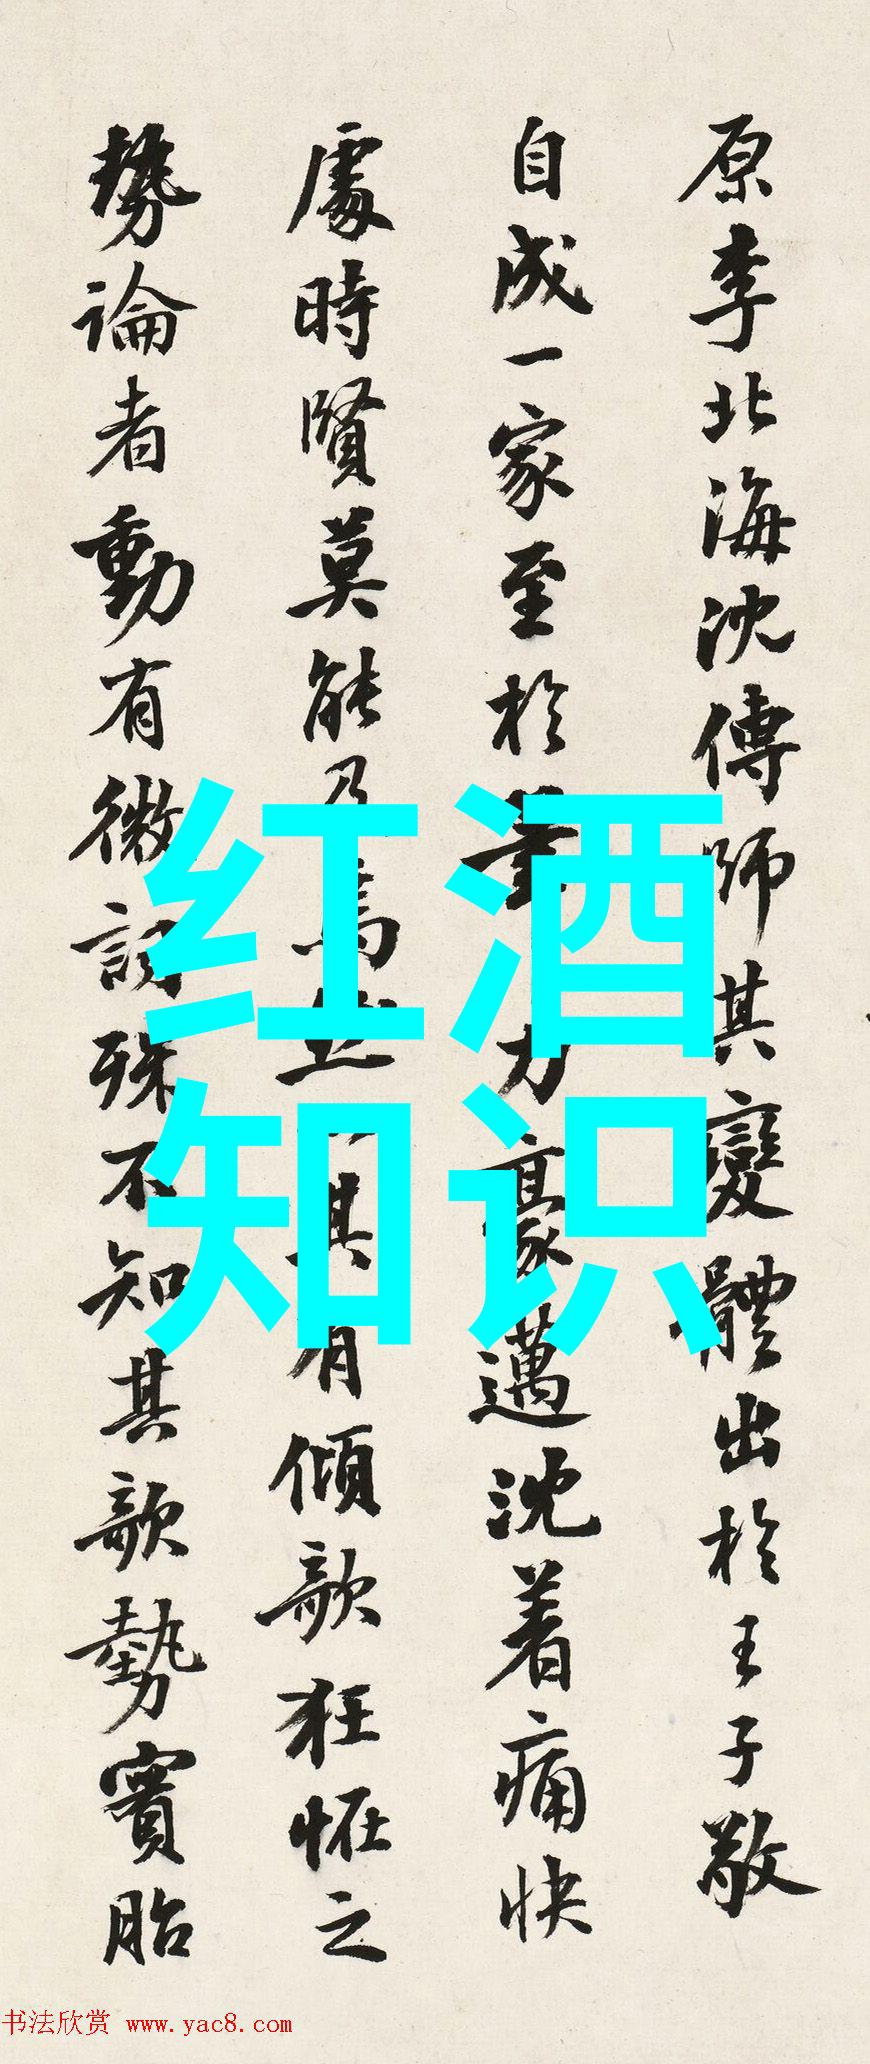 原李北海沈傳師其變體出於王子敬
自成一家至於力豪邁沈着痛快
處時賢莫能及焉然其有傾欹狂恠之
勢論者動有微詞殊不知其欹勢實胎
红酒
知识
书法欣赏 www.yac8.com